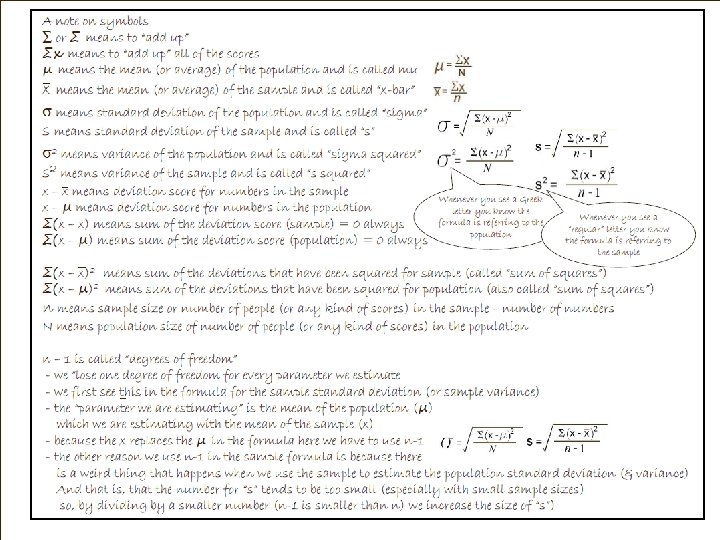 A note on symbols
Σ or Σ means to "add up"
Σx means to "add up" all of the scores
μ means the mean (or average) of the population and is called mu
x̄ means the mean (or average) of the sample and is called "x-bar"
μ = Σx / N
x̄ = Σx / n
σ means standard deviation of the population and is called "sigma"
S means standard deviation of the sample and is called "s"
σ = √(Σ(x - μ)² / N)
s = √(Σ(x - x̄)² / n - 1)
σ² means variance of the population and is called "sigma squared"
S² means variance of the sample and is called "s squared"
σ² = Σ(x - μ)² / N
s² = Σ(x - x̄)² / n - 1
x - x̄ means deviation score for numbers in the sample
x - μ means deviation score for numbers in the population
Σ(x - x) means sum of the deviation score (sample) = 0 always
Σ(x - μ) means sum of the deviation score (population) = 0 always
Whenever you see a Greek
letter you know the
formula is referring to the
population
Whenever you see a
"regular" letter you know
the formula is referring to
the sample
Σ(x – x̄)² means sum of the deviations that have been squared for sample (called "sum of squares")
Σ(x – μ)² means sum of the deviations that have been squared for population (also called "sum of squares")
n means sample size or number of people (or any kind of scores) in the sample – number of numbers
N means population size of number of people (or any kind of scores) in the population
n – 1 is called "degrees of freedom"
- we "lose one degree of freedom for every parameter we estimate
- we first see this in the formula for the sample standard deviation (or sample variance)
- the "parameter we are estimating" is the mean of the population (μ)
which we are estimating with the mean of the sample (x̄)
- because the x replaces the μ in the formula here we have to use n-1
σ = √(Σ(x - μ)² / N)
s = √(Σ(x - x̄)² / n - 1)
- the other reason we use n-1 in the sample formula is because there
is a weird thing that happens when we use the sample to estimate the population standard deviation (& variance)
And that is, that the number for "s" tends to be too small (especially with small sample sizes)
so, by dividing by a smaller number (n-1 is smaller than n) we increase the size of "s")